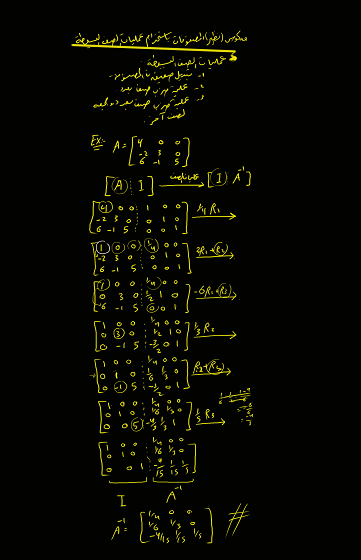 معكوس (نظير) المصفوفات باستخدام عمليات الصف البسيطة
عمليات الصف البسيطة
1- تبديل صفين
2- عملية ضرب صف
3- عملية ضرب صف
لصف آخر
Ex: A = [4 0 0; -2 3 0; 6 -1 5]
[(A) | I] → [I A⁻¹]
[4 0 0 | 1 0 0; -2 3 0 | 0 1 0; 6 -1 5 | 0 0 1] 1/4 R₁ →
[1 0 0 | 1/4 0 0; -2 3 0 | 0 1 0; 6 -1 5 | 0 0 1] 2R₁+(R₂) →
[1 0 0 | 1/4 0 0; 0 3 0 | 1/2 1 0; 6 -1 5 | 0 0 1] -6R₁+(R₃) →
[1 0 0 | 1/4 0 0; 0 3 0 | 1/2 1 0; 0 -1 5 | -3/2 0 1] 1/3 R₂ →
[1 0 0 | 1/4 0 0; 0 1 0 | 1/6 1/3 0; 0 -1 5 | -3/2 0 1] R₂+(R₃) →
[1 0 0 | 1/4 0 0; 0 1 0 | 1/6 1/3 0; 0 0 5 | -4/3 1/3 1] 1/5 R₃ →
[1 0 0 | 1/4 0 0; 0 1 0 | 1/6 1/3 0; 0 0 1 | -4/15 1/15 1/5]
I A⁻¹
A⁻¹ = [1/4 0 0; 1/6 1/3 0; -4/15 1/15 1/5] #